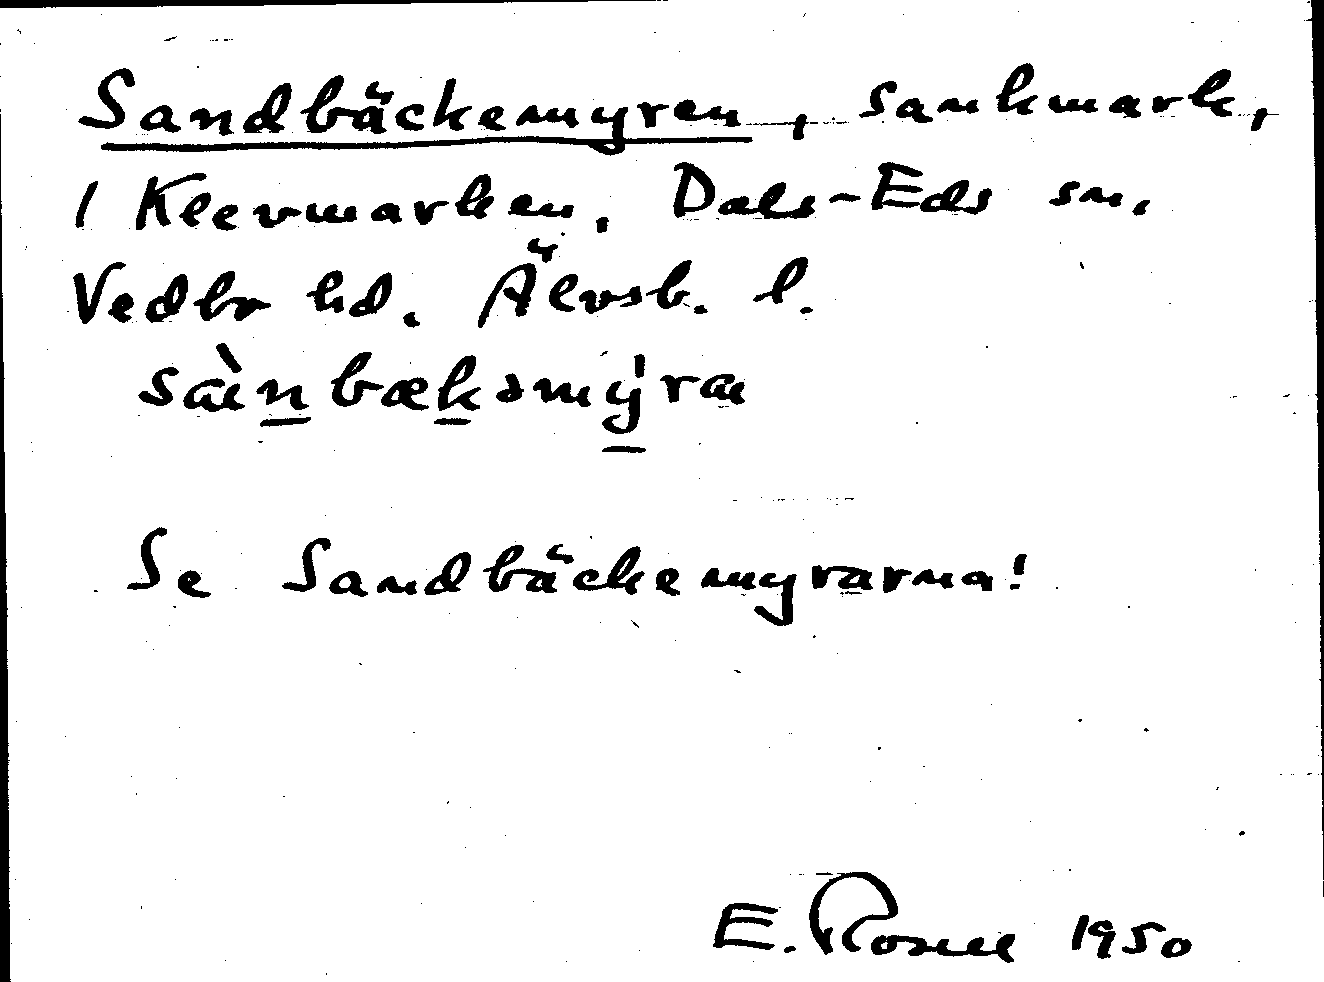 Sandbäckemyren, sankmark,
I Klevmarken. Dals-Eds sn.
Vedbo hd. Älvsb. l.
sàn bæksmýra
Se Sandbäckemyrarna!
E. Rosell 1950